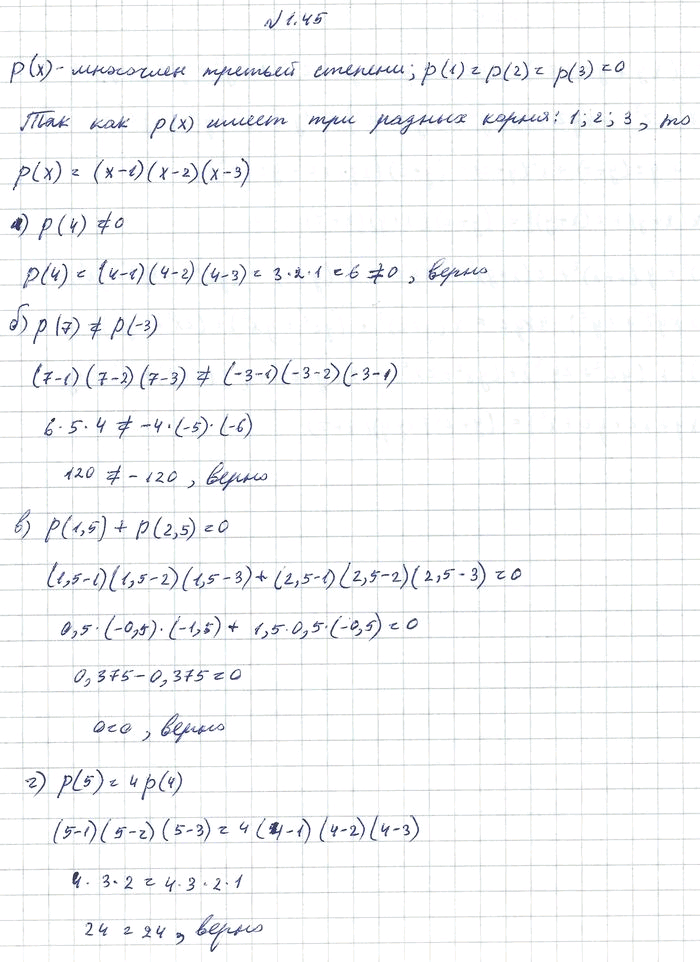 №1.45
P(x) - многочлен третьей степени; p(1) = p(2) = p(3) = 0
Так как p(x) имеет три разных корня: 1; 2; 3, то
p(x) = (x-1)(x-2)(x-3)
а) p(4) ≠ 0
p(4) = (4-1)(4-2)(4-3) = 3·2·1 = 6 ≠ 0, верно
б) p(7) ≠ p(-3)
(7-1)(7-2)(7-3) ≠ (-3-1)(-3-2)(-3-1)
6·5·4 ≠ -4·(-5)·(-6)
120 ≠ -120, верно
в) p(1,5) + p(2,5) = 0
(1,5-1)(1,5-2)(1,5-3) + (2,5-1)(2,5-2)(2,5-3) = 0
0,5·(-0,5)·(-1,5) + 1,5·0,5·(-0,5) = 0
0,375 - 0,375 = 0
0=0, верно
г) p(5) = 4p(4)
(5-1)(5-2)(5-3) = 4(4-1)(4-2)(4-3)
4·3·2 = 4·3·2·1
24 = 24, верно